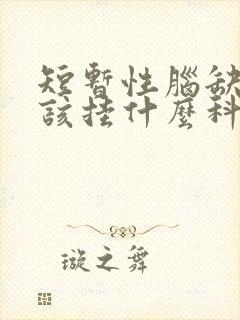 短暫性腦缺
該挂什麼科
璇之舞